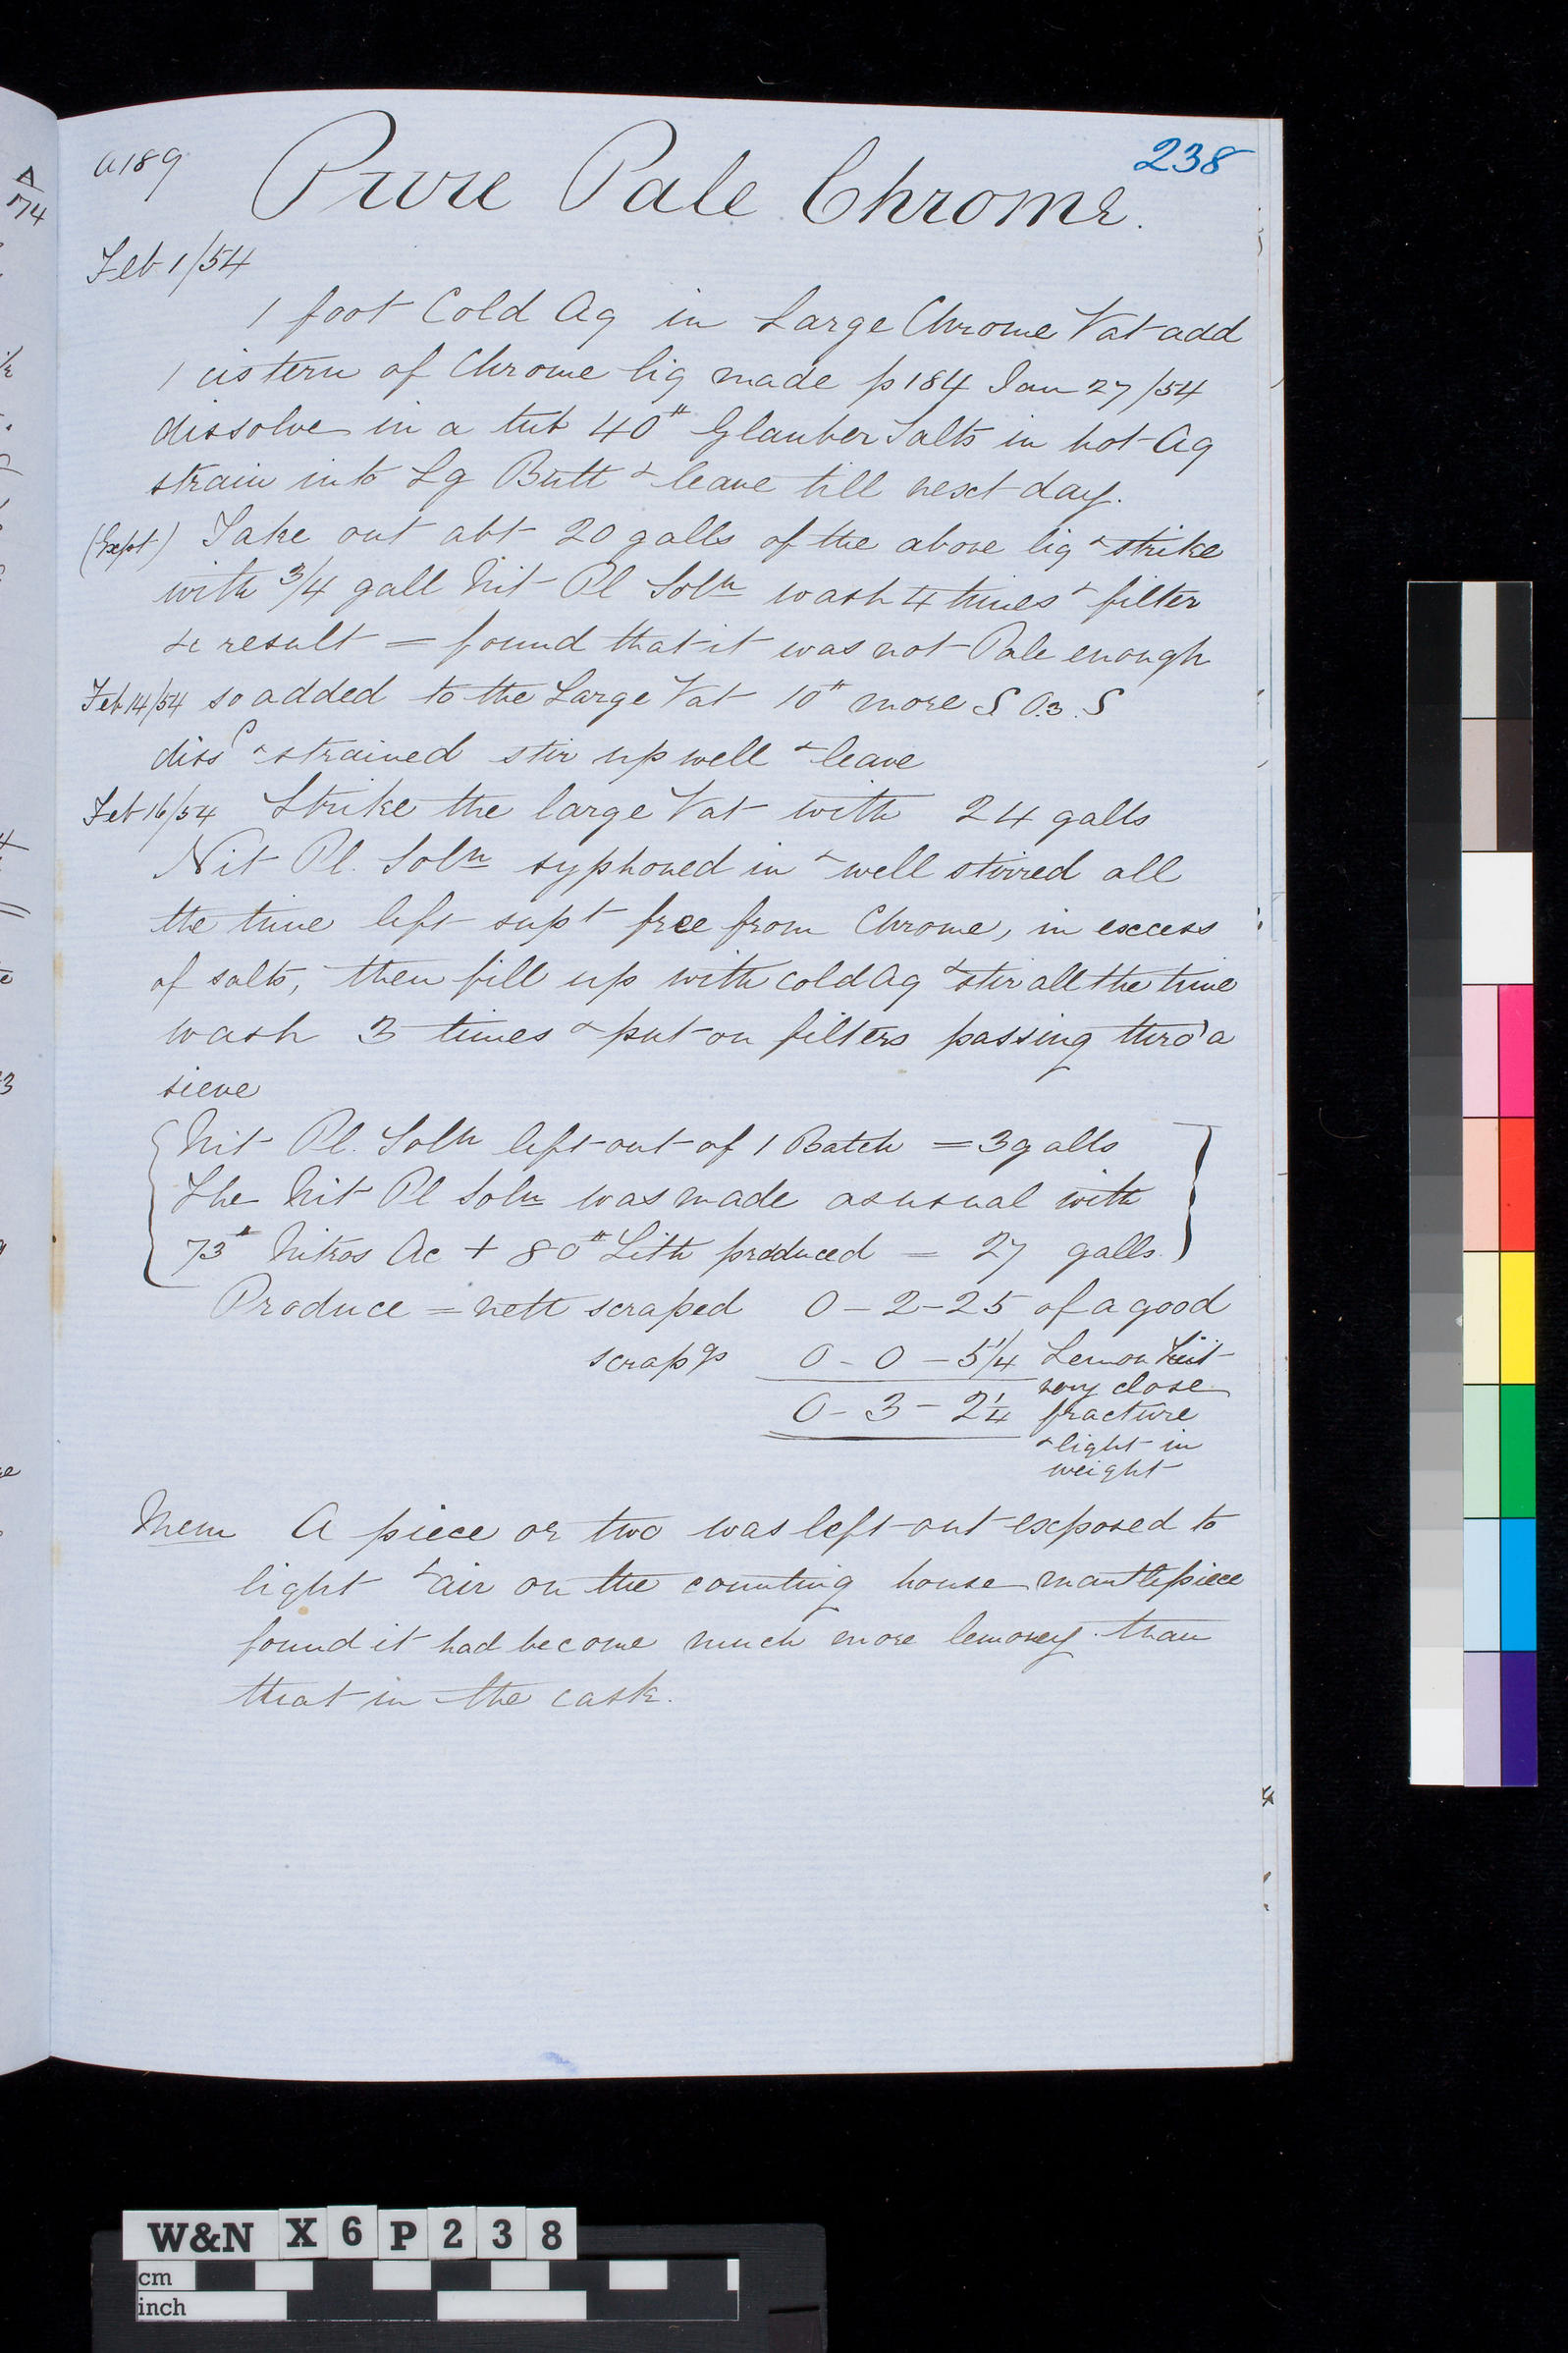 A189
238
Pure Pale Chrome.
Feb 1/54
1 foot Cold Aq in Large Chrome Vat add
1 cistern of Chrome liq made p 184 Jan 27/54
dissolve in a tub 40# Glauber Salts in hot Aq
strain into Lg Butt & leave till next day.
(Expt) Take out abt 20 galls of the above liq & strike
with 3/4 gall Nit Pl Soln wash 4 times & filter
&c result = found that it was not Pale enough
Feb 14/54 so added to the Large Vat 10# more S O.3. S
dissd & strained stir up well & leave
Feb 16/54 Strike the large Vat with 24 galls
Nit Pl. Soln syphoned in & well stirred all
the time left supt free from Chrome, in excess
of salts, then fill up with cold Aq & stir all the time
wash 3 times & put on filters passing thro' a
sieve
Nit Pl. Soln left out of 1 Batch = 3 galls
The Nit Pl Soln was made as usual with
73# Nitros Ac + 80# Lith produced = 27 galls.
Produce = nett scraped 0-2-25 of a good
scrapgs 0-0-5 1/4 Lemon tint
very close
0-3-2 1/4 fracture
& light in
weight
Mem A piece or two was left out exposed to
light & air on the counting house mantlepiece
found it had become much more lemoney than
that in the cask.
W&N X6P238
cm
inch